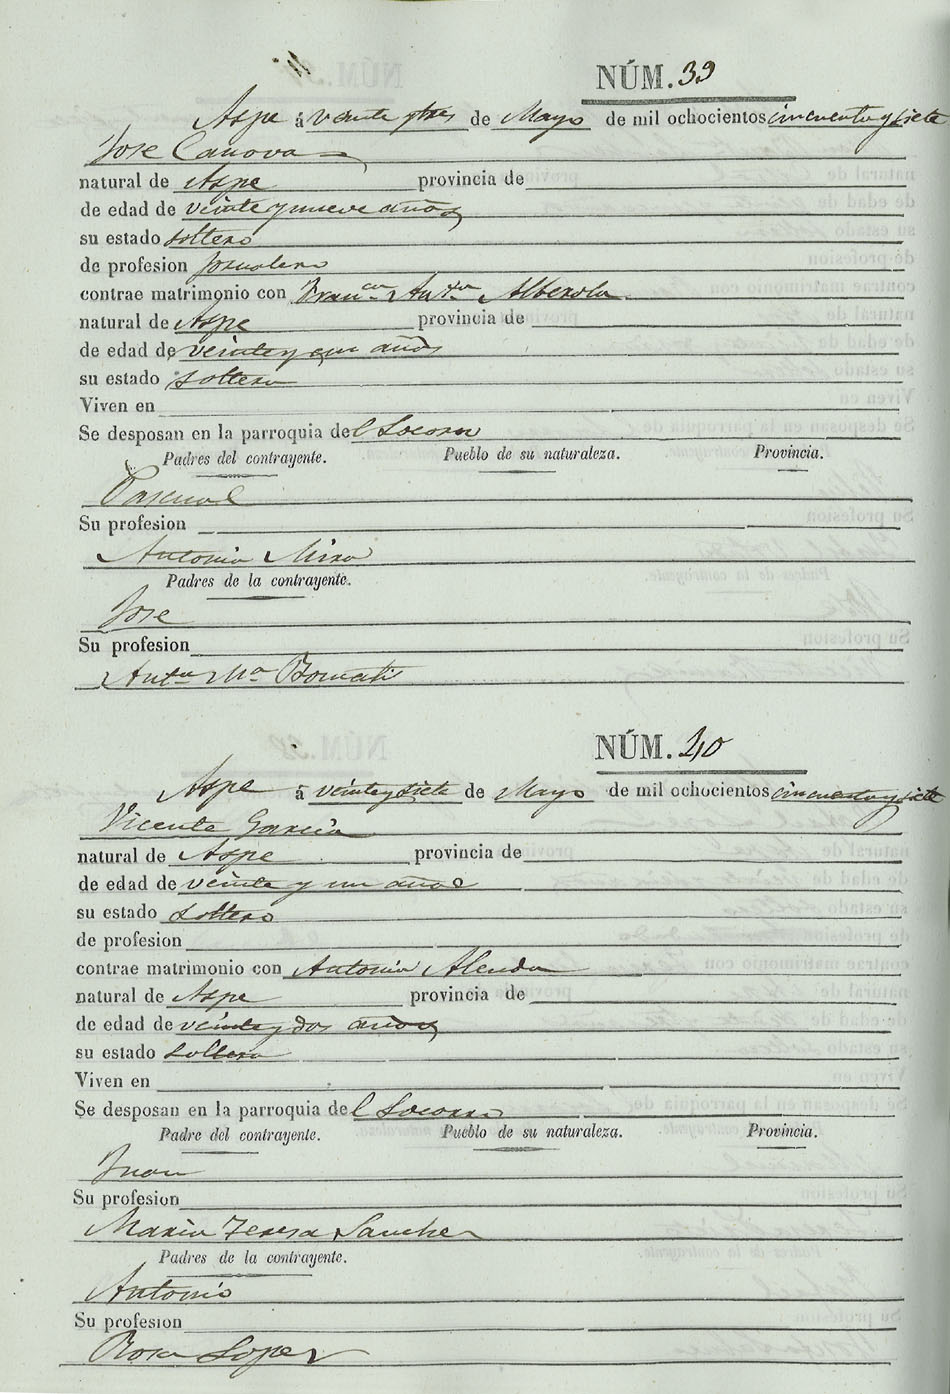 NÚM. 39
Aspe á veinte y tres de Mayo de mil ochocientos cincuenta y siete
Jose Canova
natural de Aspe provincia de
de edad de veinte y nueve años
su estado soltero
de profesion Jornalero
contrae matrimonio con Franca Anta Alberola
natural de Aspe provincia de
de edad de veinte y un años
su estado soltera
Viven en
Se desposan en la parroquia del Socorro
Padres del contrayente. Pueblo de su naturaleza. Provincia.
Pascual
Su profesion
Antonia Mira
Padres de la contrayente.
Jose
Su profesion
Anta Ma Bornati
NÚM. 40
Aspe á veinte y siete de Mayo de mil ochocientos cincuenta y siete
Vicente Garcia
natural de Aspe provincia de
de edad de veinte y un años
su estado Soltero
de profesion
contrae matrimonio con Antonia Alenda
natural de Aspe provincia de
de edad de veinte y dos años
su estado Soltera
Viven en
Se desposan en la parroquia del Socorro
Padre del contrayente. Pueblo de su naturaleza. Provincia.
Juan
Su profesion
Maria Teresa Sanchez
Padres de la contrayente.
Antonio
Su profesion
Rosa Lopez